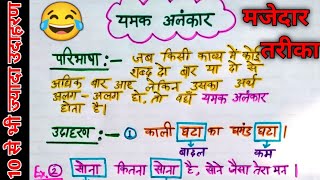 यमक अलंकार
मजेदार
तरीका
10 से भी ज्यादा उदाहरण
परिभाषा:- जब किसी काव्य में कोई
शब्द दो बार या दो से
अधिक बार आए लेकिन उसका अर्थ
अलग-अलग हो, तो वहाँ यमक अलंकार
होता है।
उदाहरण:- ① काली घटा का घमंड घटा।
बादल कम
Eg.② सोना कितना सोना है, सोने जैसा तेरा मन।